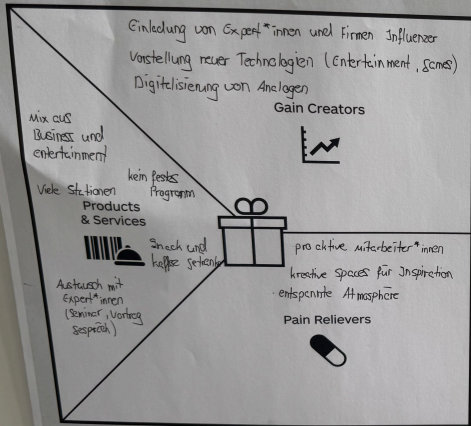 Einladung von Expert*innen und Firmen Influenzer
Vorstellung neuer Technologien (Entertainment, Games)
Digitalisierung von Analogen
Gain Creators
Mix aus
Business und
entertainment
kein festes
Viele Stationen Programm
Products
& Services
Snack und
kaffee getränke
Austausch mit
Expert*innen
(Seminar, Vortrag
gespräch)
proaktive mitarbeiter*innen
kreative spaces für Inspiration
entspannte Atmosphäre
Pain Relievers